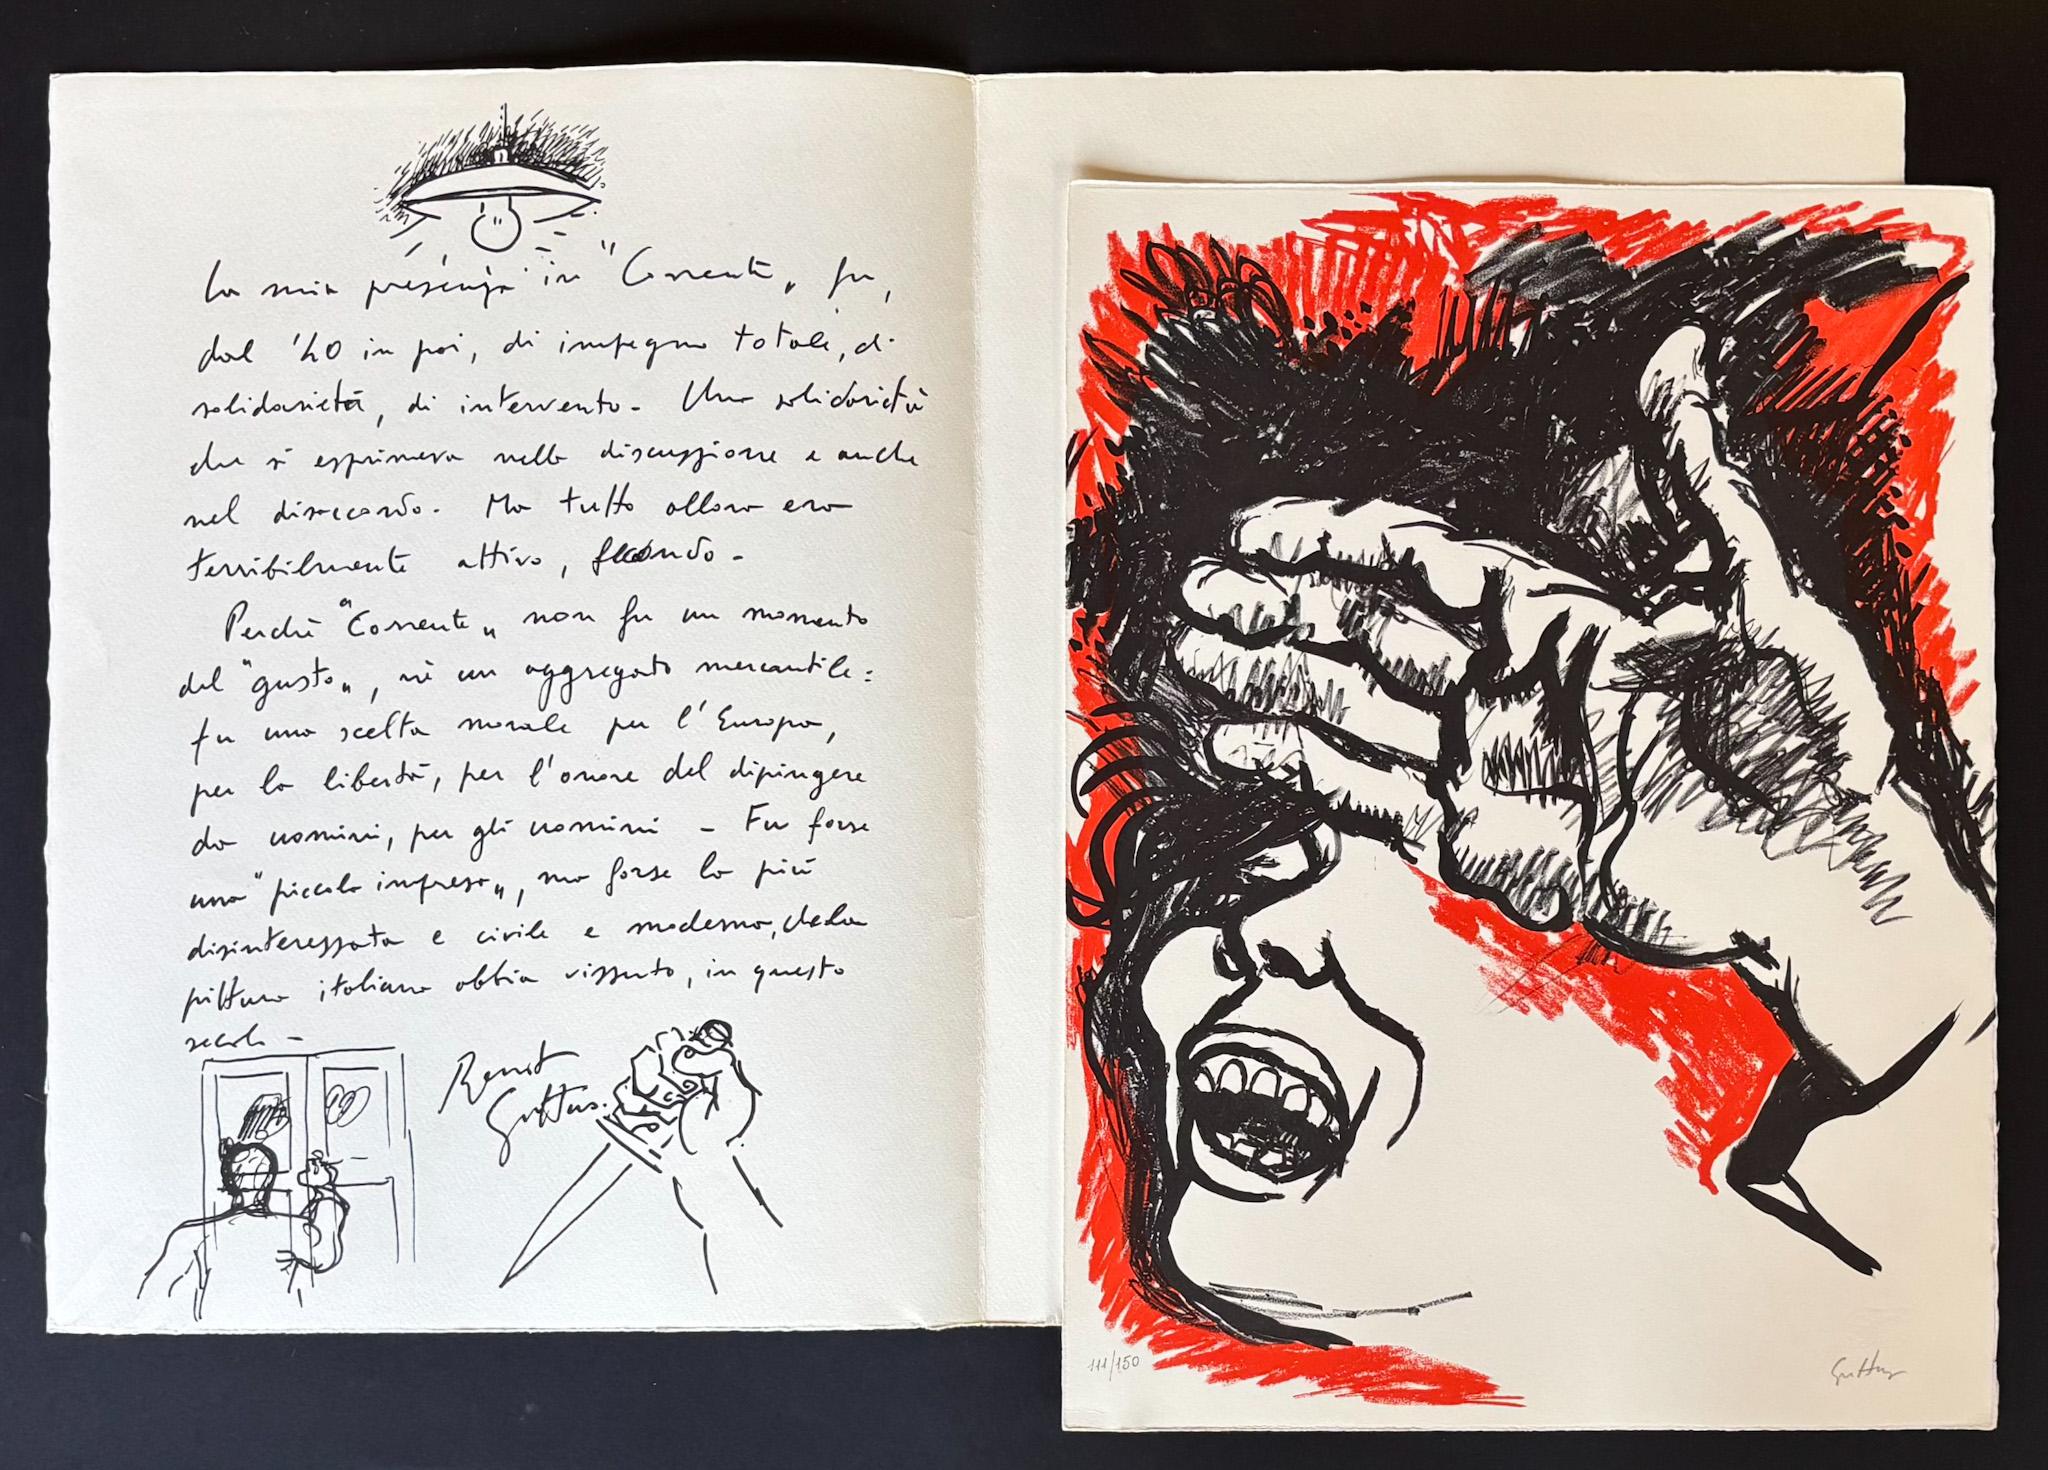 La mia presenza in "Corrente„ fu,
dal '40 in poi, di impegno totale, di
solidarietà, di intervento - Una solidarietà
che si esprimeva nella discussione e anche
nel disaccordo - Ma tutto allora era
terribilmente attivo, fecondo -
Perchè "Corrente„ non fu un momento
del "gusto„, nè un aggregato mercantile:
fu una scelta morale per l'Europa,
per la libertà, per l'onore del dipingere
da uomini, per gli uomini - Fu forse
una "piccola impresa„, ma forse la più
disinteressata e civile e moderna, che la
pittura italiana abbia vissuto, in questo
secolo -
Renato
Guttuso.
111/150
Guttuso